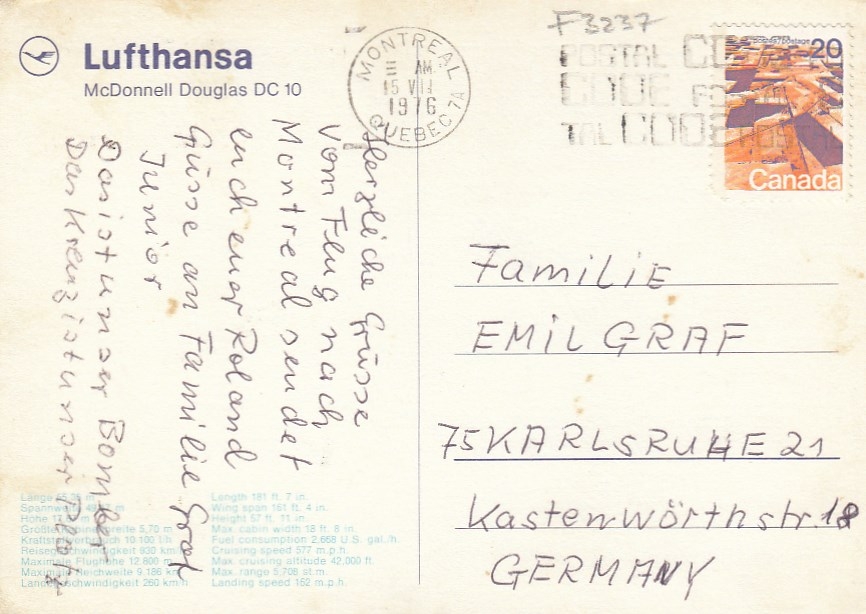 Lufthansa
McDonnell Douglas DC 10
MONTREAL
AM
15 VII
1976
QUEBEC 7A
F3237
POSTAL CODE
CODE
POSTAL
postes/postage
20
Canada
Herzliche Grüsse
vom Flug nach
Montreal sendet
euch euer Roland
Grüsse an Familie Graf
Junior
Das ist unser Bomber
Das Kreuz ist unser Platz
Familie
EMIL GRAF
75 KARLSRUHE 21
Kastenwörthstr. 18
GERMANY
Länge
Spannweite
Höhe
5,70 m
Kraftstoffverbrauch 10.100 l/h
Reisegeschwindigkeit 930 km/h
Maximale Flughöhe 12.800 m
Maximale Reichweite 9.186 km
Landegeschwindigkeit 260 km/h
Length 181 ft. 7 in.
Wing span 161 ft. 4 in.
Height 57 ft. 11 in.
Max. cabin width 18 ft. 8 in.
Fuel consumption 2,668 U.S. gal./h.
Cruising speed 577 m.p.h.
Max. cruising altitude 42,000 ft.
Max. range 5,708 st.m.
Landing speed 162 m.p.h.